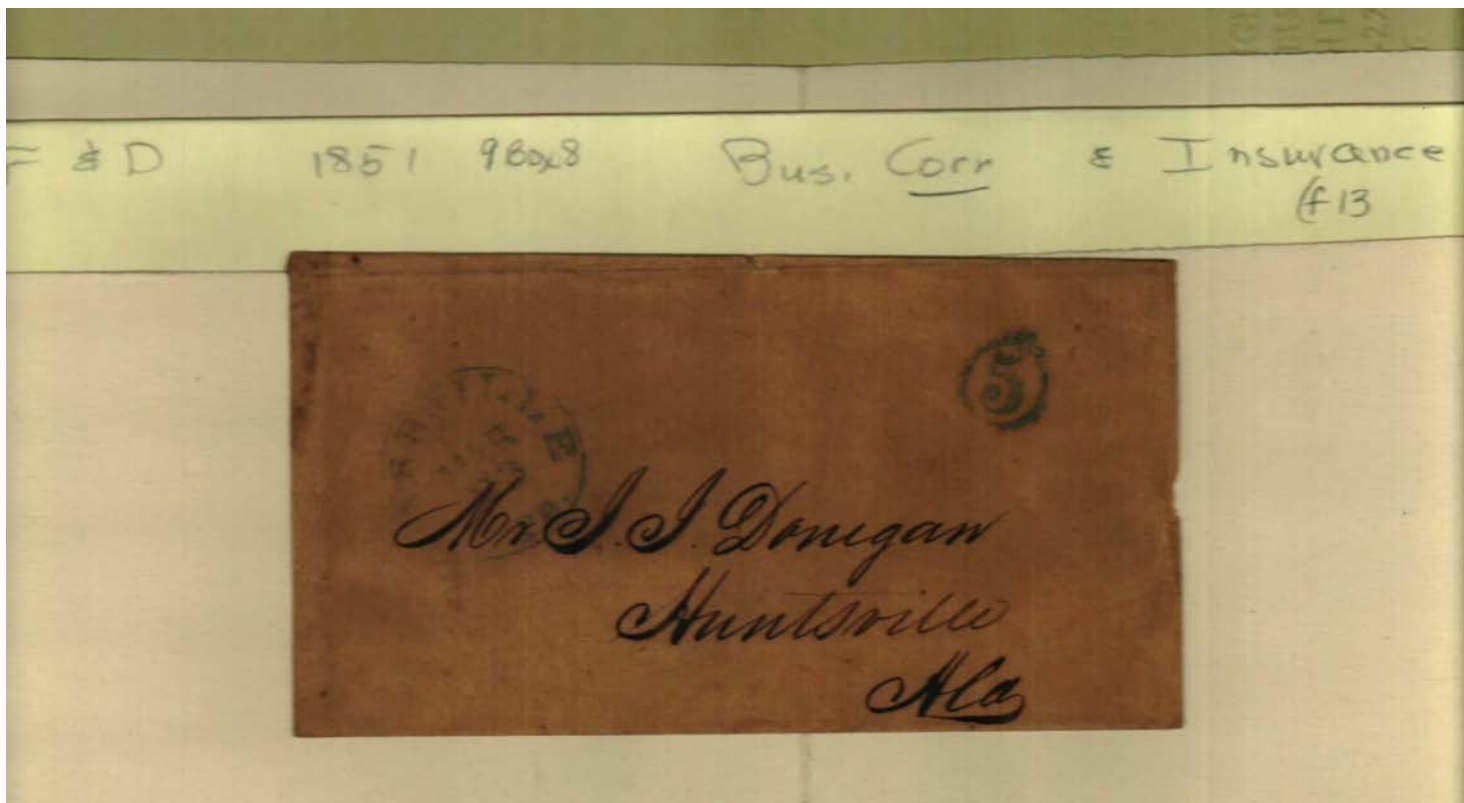 & D 1851 9 Box 8 Bus. Corr & Insurance
(f 13
5
Mr J. J. Donegan
Huntsville
Ala